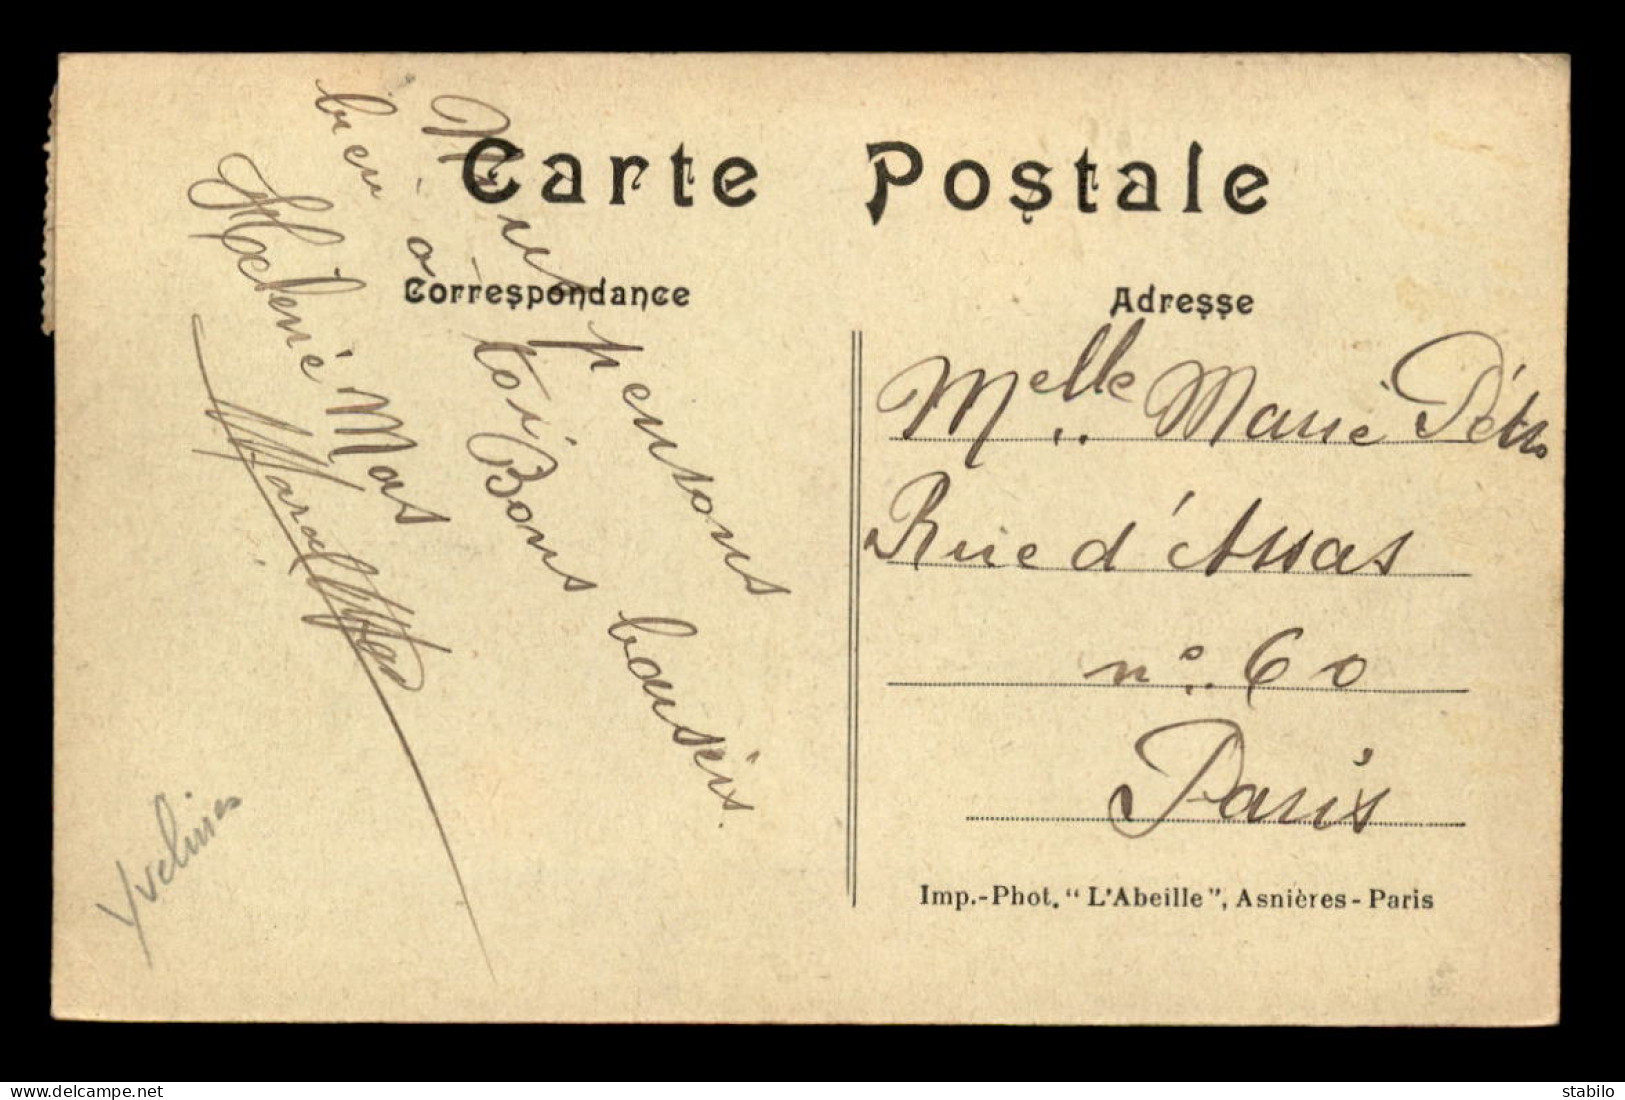 Carte Postale
Correspondance
Nous pensons
bien à toi Bons baiseis.
Mas
Marcel
Yvelines
Adresse
Melle Marie
Rue d'Assas
n° 60
Paris
Imp.-Phot. "L'Abeille", Asnières-Paris
delcampe.net
stabilo